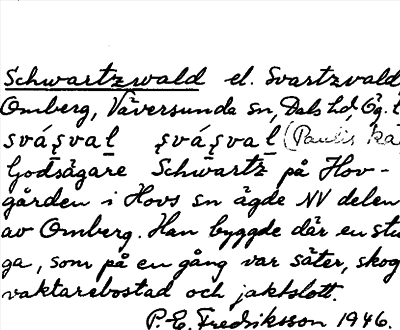 Schwartzwald el. Svartzvald
Omberg, Väversunda sn, Dals hd, Ög.
svás̩val s̩vás̩val (Paulis
Godsägare Schwartz på Hov-
gården i Hovs sn ägde NV delen
av Omberg. Han byggde där en stu
ga, som på en gång var säter, skog
vaktarebostad och jaktslott.
P. E. Fredriksson 1946.